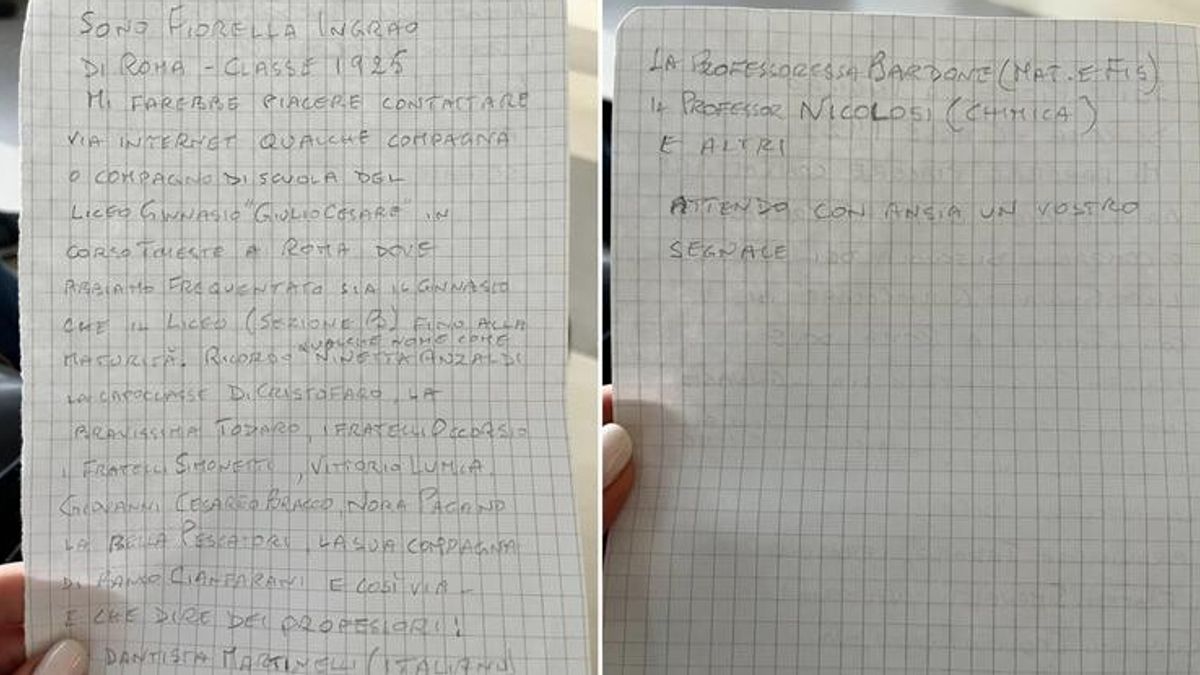 SONO FIORELLA INGRAO
DI ROMA - CLASSE 1925
MI FAREBBE PIACERE CONTATTARE
VIA INTERNET QUALCHE COMPAGNA
O COMPAGNO DI SCUOLA DEL
LICEO GINNASIO "GIULIO CESARE" IN
CORSO TRIESTE A ROMA DOVE
ABBIAMO FREQUENTATO SIA IL GINNASIO
CHE IL LICEO (SEZIONE B) FINO ALLA
MATURITÀ. RICORDO QUALCHE NOME COME
NINETTA ANZALDI
LA CAPOCLASSE DI CRISTOFARO, LA
BRAVISSIMA TODARO, I FRATELLI OCCORSIO
I FRATELLI SIMONETTI, VITTORIO LUMIA
GIOVANNI CESAREO BRACCO, NORA PAGANO
LA BELLA PESCATORI, LA SUA COMPAGNA
DI BANCO CIANFARANI E COSÌ VIA -
E CHE DIRE DEI PROFESSORI!
DANTISTA MARTINELLI (ITALIANO)
LA PROFESSORESSA BARDONE (MAT. E FIS)
IL PROFESSOR NICOLOSI (CHIMICA)
E ALTRI
ATTENDO CON ANSIA UN VOSTRO
SEGNALE